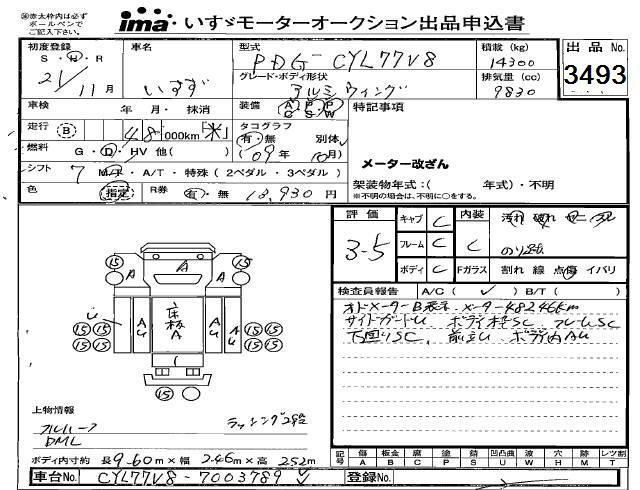 ※赤太枠内は必ず
ボールペンで
ご記入下さい。
ima いすゞモーターオークション出品申込書
初度登録 車名 型式 積載(kg) 出品No.
S・H・R いすず PDG-CYL77V8 14300 3493
21/11月 グレード・ボディ形状 排気量(cc)
アルミウィング 9830
車検 年 月・抹消 装備 A・P・P C S W 特記事項
走行 B 48,000km「※」 タコグラフ
有・無 別体
燃料 G・D・HV 他( ) (09年 10月) メーター改ざん
シフト 7 M/F・A/T・特殊(2ペダル・3ペダル)
色 指定 R券 有・無 13,930円 架装物年式:( 年式)・不明
※不明の場合は、不明に○をする。
評価 キャブ C 内装 汚れ 破れ
3-5 フレーム C C
ボディ C Fガラス 割れ 線 点傷 イバリ
検査員報告 A/C( ✓ ) B/T( )
オドメーターB表示 メーター48246km
サイドガードU ボディ枠SC フレームSC
下回りSC、前立U ボディ内AU
15 15
A A A
U
15 15 A U 床板A A U 15 15
15 15 15 15
15
上物情報 ラッシング2段
フルハーフ
DML
ボディ内寸 長9.60m×幅2.46m×高252m
記号 傷 A 板金 B 腐 C 塗 P 錆 S 凹凸曲 U 波 W 穴 H 跡 M レス L 切 T
車台No. CYL77V8-7003789 ✓ 登録No.